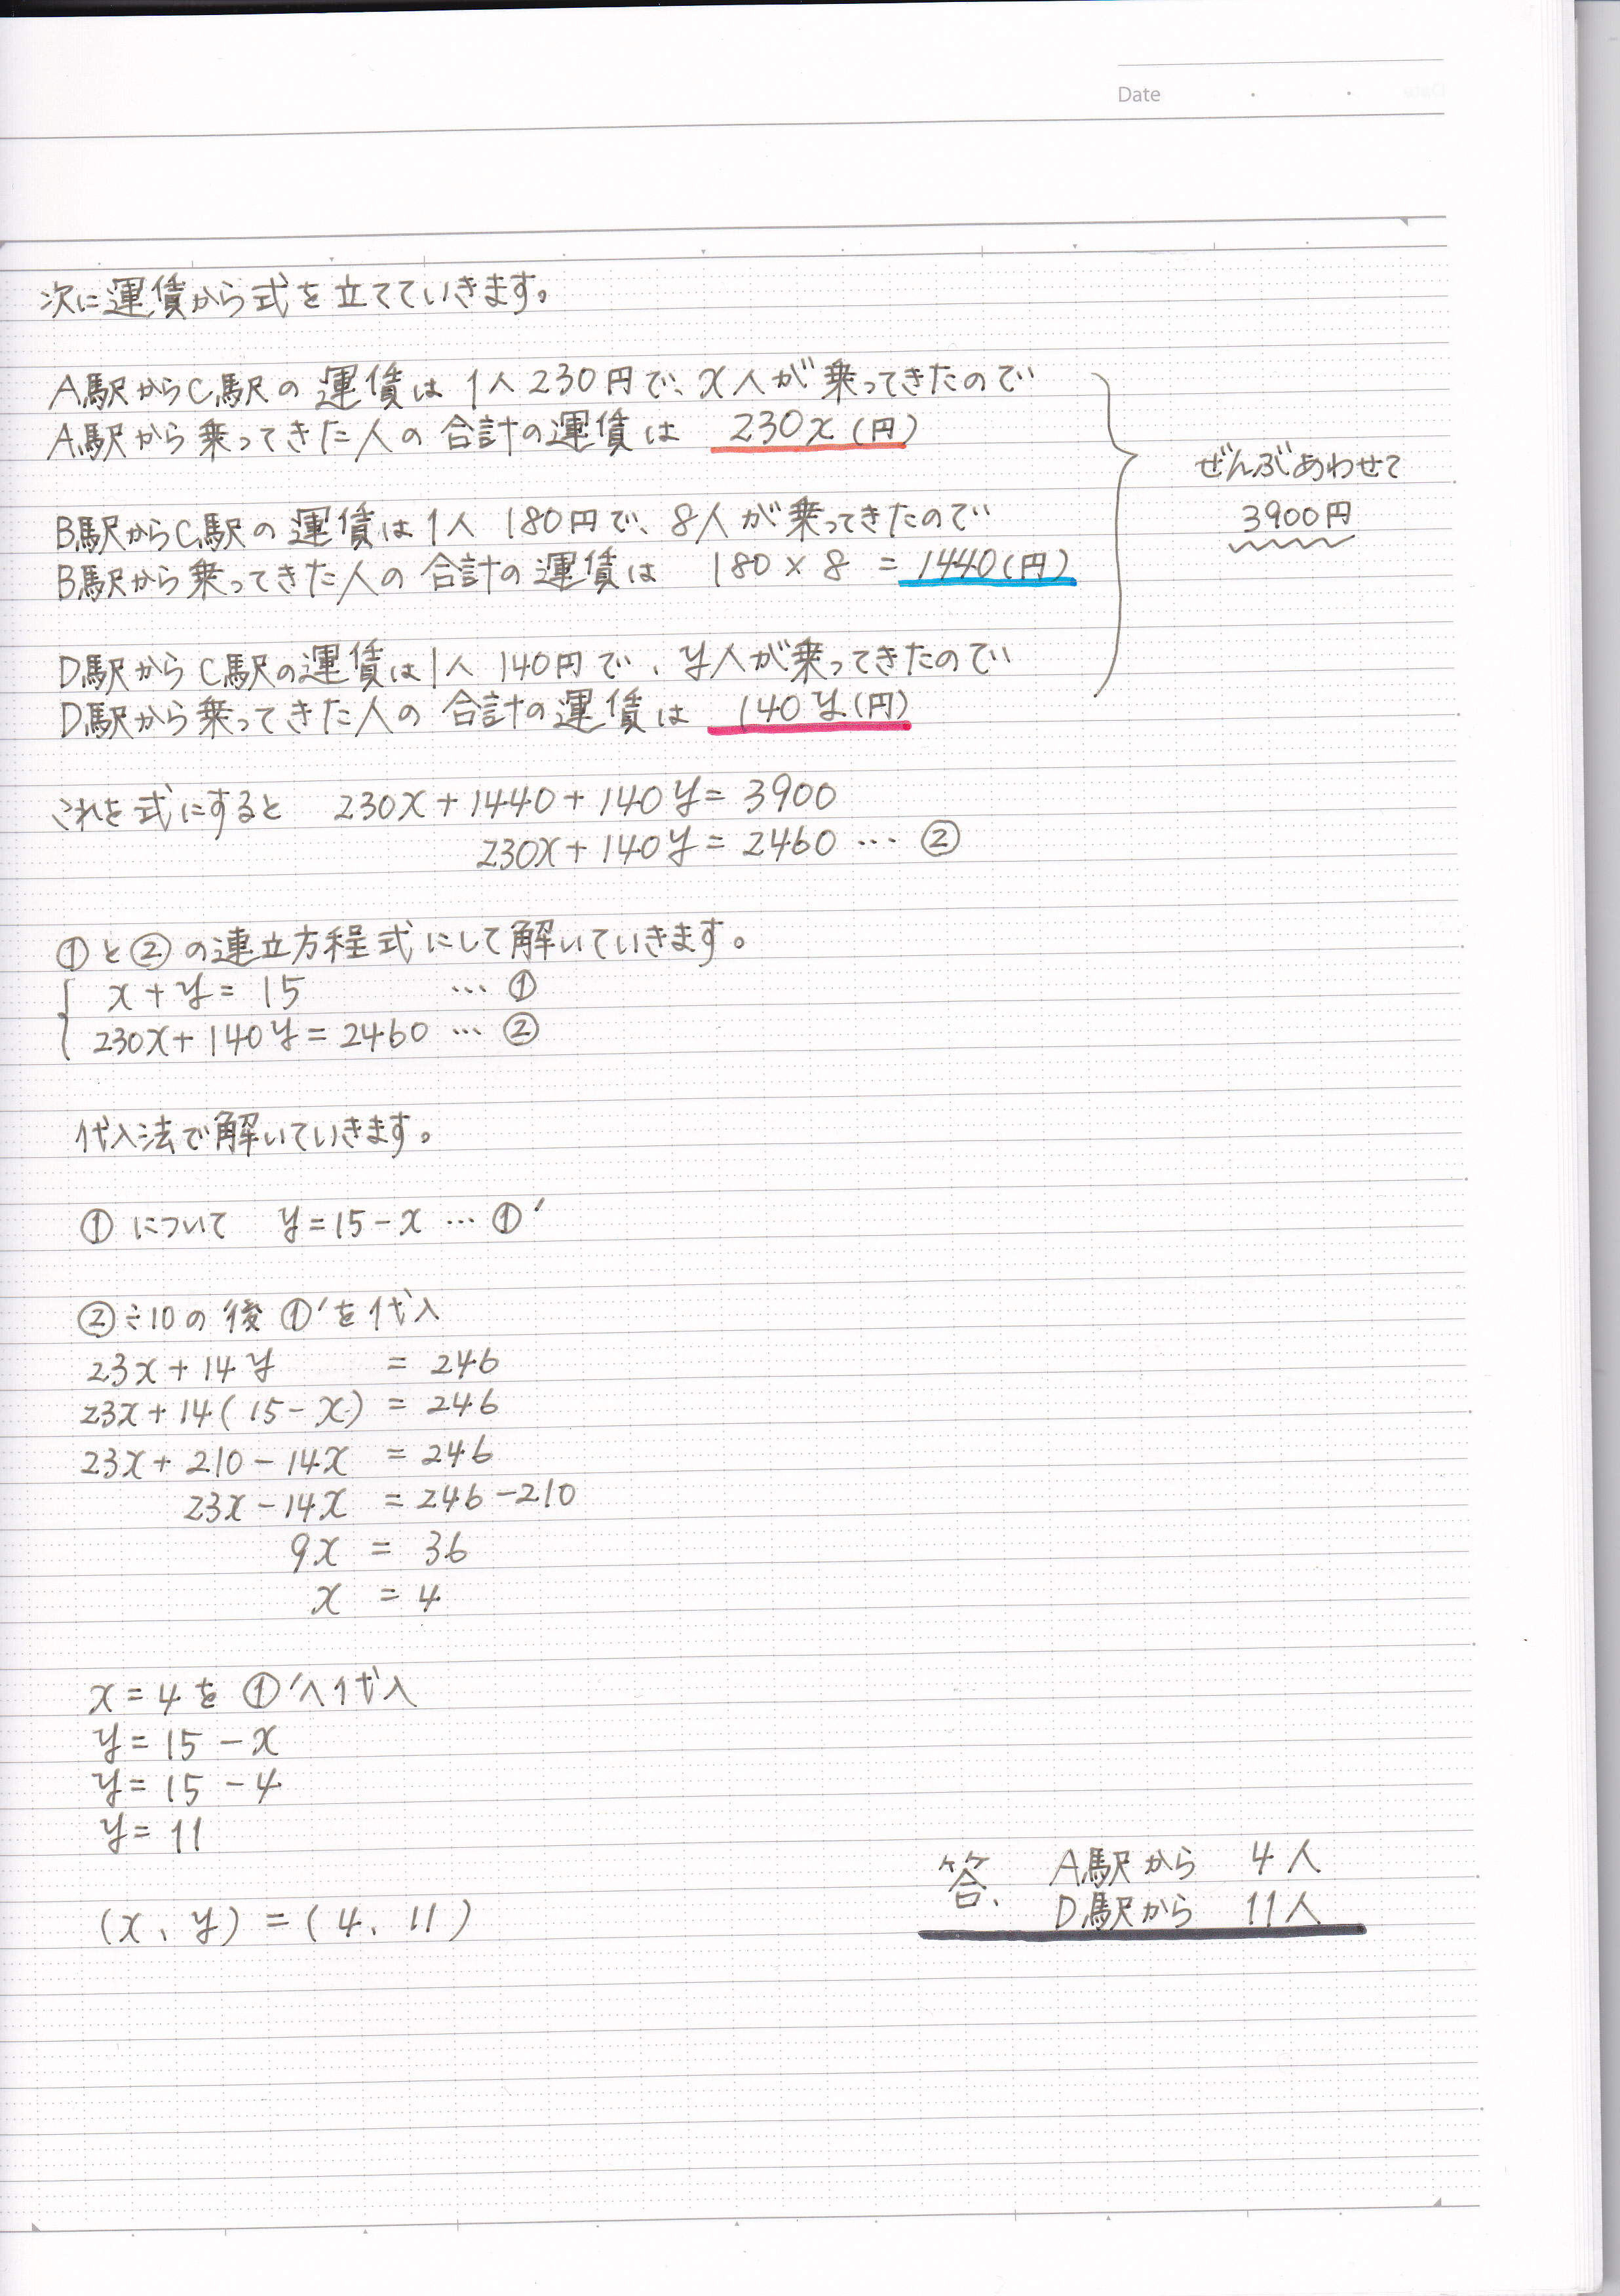 Date
次に運賃から式を立てていきます。
A駅からC駅の運賃は1人230円で、x人が乗ってきたので
A駅から乗ってきた人の合計の運賃は 230x(円)
ぜんぶあわせて
3900円
B駅からC駅の運賃は1人180円で、8人が乗ってきたので
B駅から乗ってきた人の合計の運賃は 180×8 =1440(円)
D駅からC駅の運賃は1人140円で、y人が乗ってきたので
D駅から乗ってきた人の合計の運賃は 140y(円)
これを式にすると 230x+1440+140y=3900
230x+140y=2460 … ②
①と②の連立方程式にして解いていきます。
x+y=15 … ①
230x+140y=2460 … ②
代入法で解いていきます。
①について y=15-x … ①'
②÷10の後①'を代入
23x+14y = 246
23x+14(15-x) = 246
23x+210-14x = 246
23x-14x = 246-210
9x = 36
x = 4
x=4を①'へ代入
y=15-x
y=15-4
y=11
(x、y)=(4、11)
答、 A駅から 4人
D駅から 11人